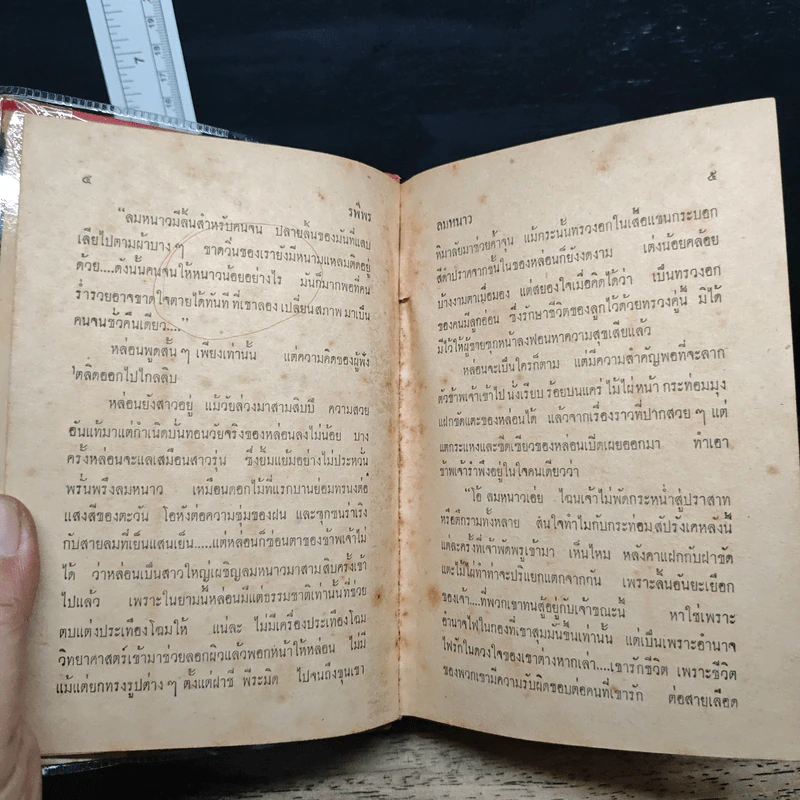 ๔
รพีพร
"ลมหนาวมีลิ้นสำหรับคนจน ปลายลิ้นของมันที่แลบ
เลียไปตามผ้าบาง ๆ ขาดวิ่นของเรายังมีหนามแหลมติดอยู่
ด้วย....ดังนั้นคนจนให้หนาวน้อยอย่างไร มันก็มากพอที่คน
ร่ำรวยอาจขาดใจตายได้ทันที ที่เขาลอง เปลี่ยนสภาพ มาเป็น
คนจนชั่วคืนเดียว...."
หล่อนพูดสั้น ๆ เพียงเท่านั้น แต่ความคิดของผู้ฟัง
เตลิดออกไปไกลลิบ
หล่อนยังสาวอยู่ แม้วัยล่วงมาสามสิบปี ความสวย
อันแท้มาแต่กำเนิดบั่นทอนวัยจริงของหล่อนลงไม่น้อย บาง
ครั้งหล่อนจะแลเสมือนสาวรุ่น ซึ่งยิ้มแย้มอย่างไม่ประหวั่น
พรั่นพรึงลมหนาว เหมือนดอกไม้ที่แรกบานย่อมทรนงต่อ
แสงสีของตะวัน โอหังต่อความชุ่มของฝน และซุกซนร่าเริง
กับสายลมที่เย็นแสนเย็น.....แต่หล่อนก็ซ่อนตาของข้าพเจ้าไม่
ได้ ว่าหล่อนเป็นสาวใหญ่เผชิญลมหนาวมาสามสิบครั้งเข้า
ไปแล้ว เพราะในยามนี้หล่อนมีแต่ธรรมชาติเท่านั้นที่ช่วย
ตบแต่งประเทืองโฉมให้ แน่ละ ไม่มีเครื่องประเทืองโฉม
วิทยาศาสตร์เข้ามาช่วยลอกผิวแล้วพอกหน้าให้หล่อน ไม่มี
แม้แต่ยกทรงรูปต่าง ๆ ตั้งแต่ฝาชี พีระมิด ไปจนถึงขุนเขา
ลมหนาว
๕
หิมาลัยมาช่วยค้ำจุน แม้กระนั้นทรวงอกในเสื้อแขนกระบอก
สีดำปราศจากชั้นในของหล่อนก็ยังงดงาม เต่งน้อยคล้อย
บ้างงามตาเมื่อมอง แต่สยองใจเมื่อคิดได้ว่า เป็นทรวงอก
ของคนมีลูกอ่อน ซึ่งรักษาชีวิตของลูกไว้ด้วยทรวงคู่นี้ มิได้
มีไว้ให้ผู้ชายซกหน้าลงฟอนหาความสุขเสียแล้ว
หล่อนจะเป็นใครก็ตาม แต่มีความสำคัญพอที่จะลาก
ตัวข้าพเจ้าเข้าไป นั่งเรียบ ร้อยบนแคร่ ไม้ไผ่ หน้า กระท่อมมุง
แฝกขัดแตะของหล่อนได้ แล้วจากเรื่องราวที่ปากสวย ๆ แต่
แตกระแหงและซีดเซียวของหล่อนเปิดเผยออกมา ทำเอา
ข้าพเจ้ารำพึงอยู่ในใจคนเดียวว่า
"โอ้ ลมหนาวเอ่ย ไฉนเจ้าไม่พัดกระหน่ำสู่ปราสาท
หรือตึกรามทั้งหลาย สนใจทำไมกับกระท่อมสัปรังเคหลังนี้
แต่ละครั้งที่เจ้าพัดพรูเข้ามา เห็นไหม หลังคาแฝกกับฝาขัด
แตะไม้ไผ่ทำท่าจะปริแยกตกจากกัน เพราะลิ้นอันยะเยือก
ของเจ้า....ที่พวกเขาทนสู้อยู่กับเจ้าขณะนี้ หาใช่เพราะ
อำนาจไฟในกองที่เขาสุมมันขึ้นเท่านั้น แต่เป็นเพราะอำนาจ
ไฟรักในดวงใจของเขาต่างหากเล่า....เขารักชีวิต เพราะชีวิต
ของพวกเขามีความรับผิดชอบต่อคนที่เขารัก ต่อสายเลือด
7
19
18
17
16